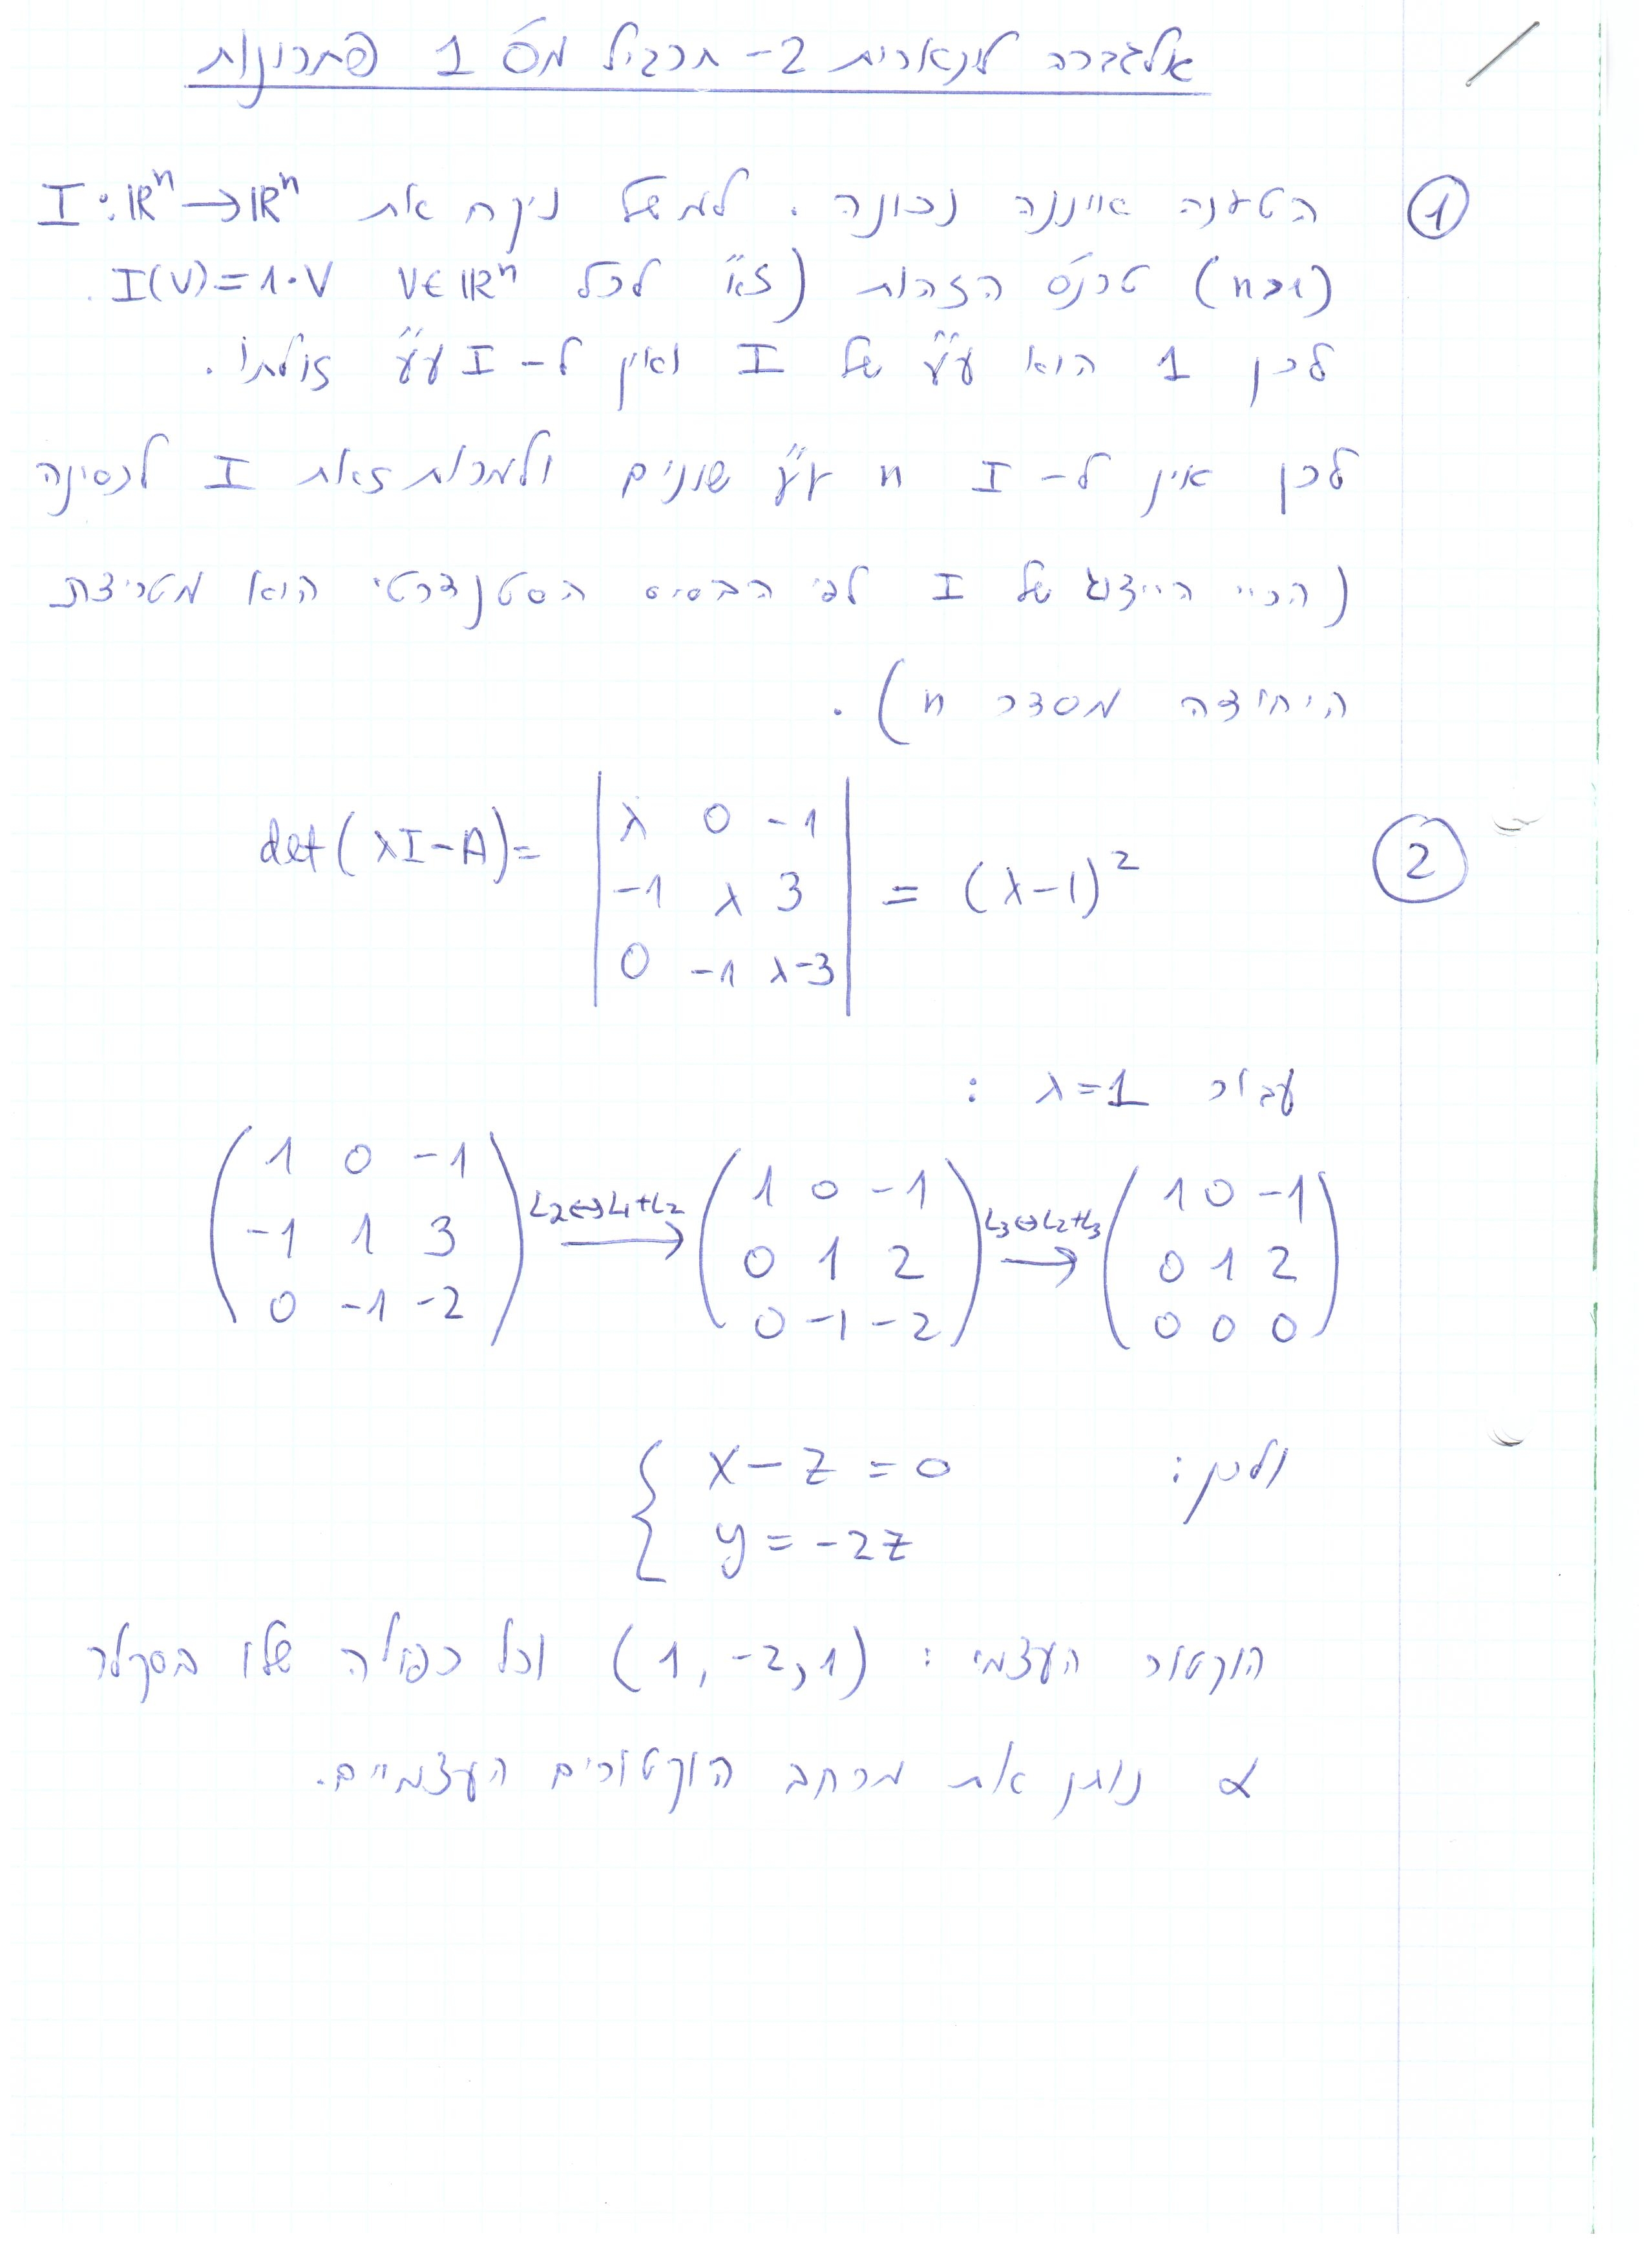 אלגברה לינארית 2 - תרגיל מס' 1 פתרונות
① הטענה אייננה נכונה. למשל ניקח את I: ℝⁿ → ℝⁿ
(n>1) טרנס' הזהות (ז"א לכל v∈ℝⁿ I(v)=1·v.
לכן 1 הוא ע"ע של I ואין ל-I ע"ע זולתו.
לכן אין ל-I n ע"ע שונים ולמרות זאת I לכסינה
(הרי הייצוג של I לפי הבסיס הסטנדרטי הוא מטריצת
היחידה מסדר n).
② det(λI-A)= | λ 0 -1 |
| -1 λ 3 | = (λ-1)²
| 0 -1 λ-3 |
עבור λ=1 :
( 1 0 -1 ) ( 1 0 -1 ) ( 1 0 -1 )
( -1 1 3 ) L2↔L1+L2 → ( 0 1 2 ) L3↔L2+L3 → ( 0 1 2 )
( 0 -1 -2 ) ( 0 -1 -2 ) ( 0 0 0 )
ולכן: { x-z=0
y=-2z
הוקטור העצמי: (1,-2,1) וכל כפולה שלו בסקלר
α נותן את מרחב הוקטורים העצמיים.